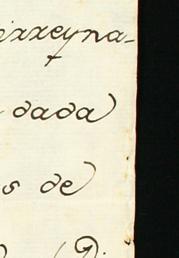 irreyna-
dada
s de